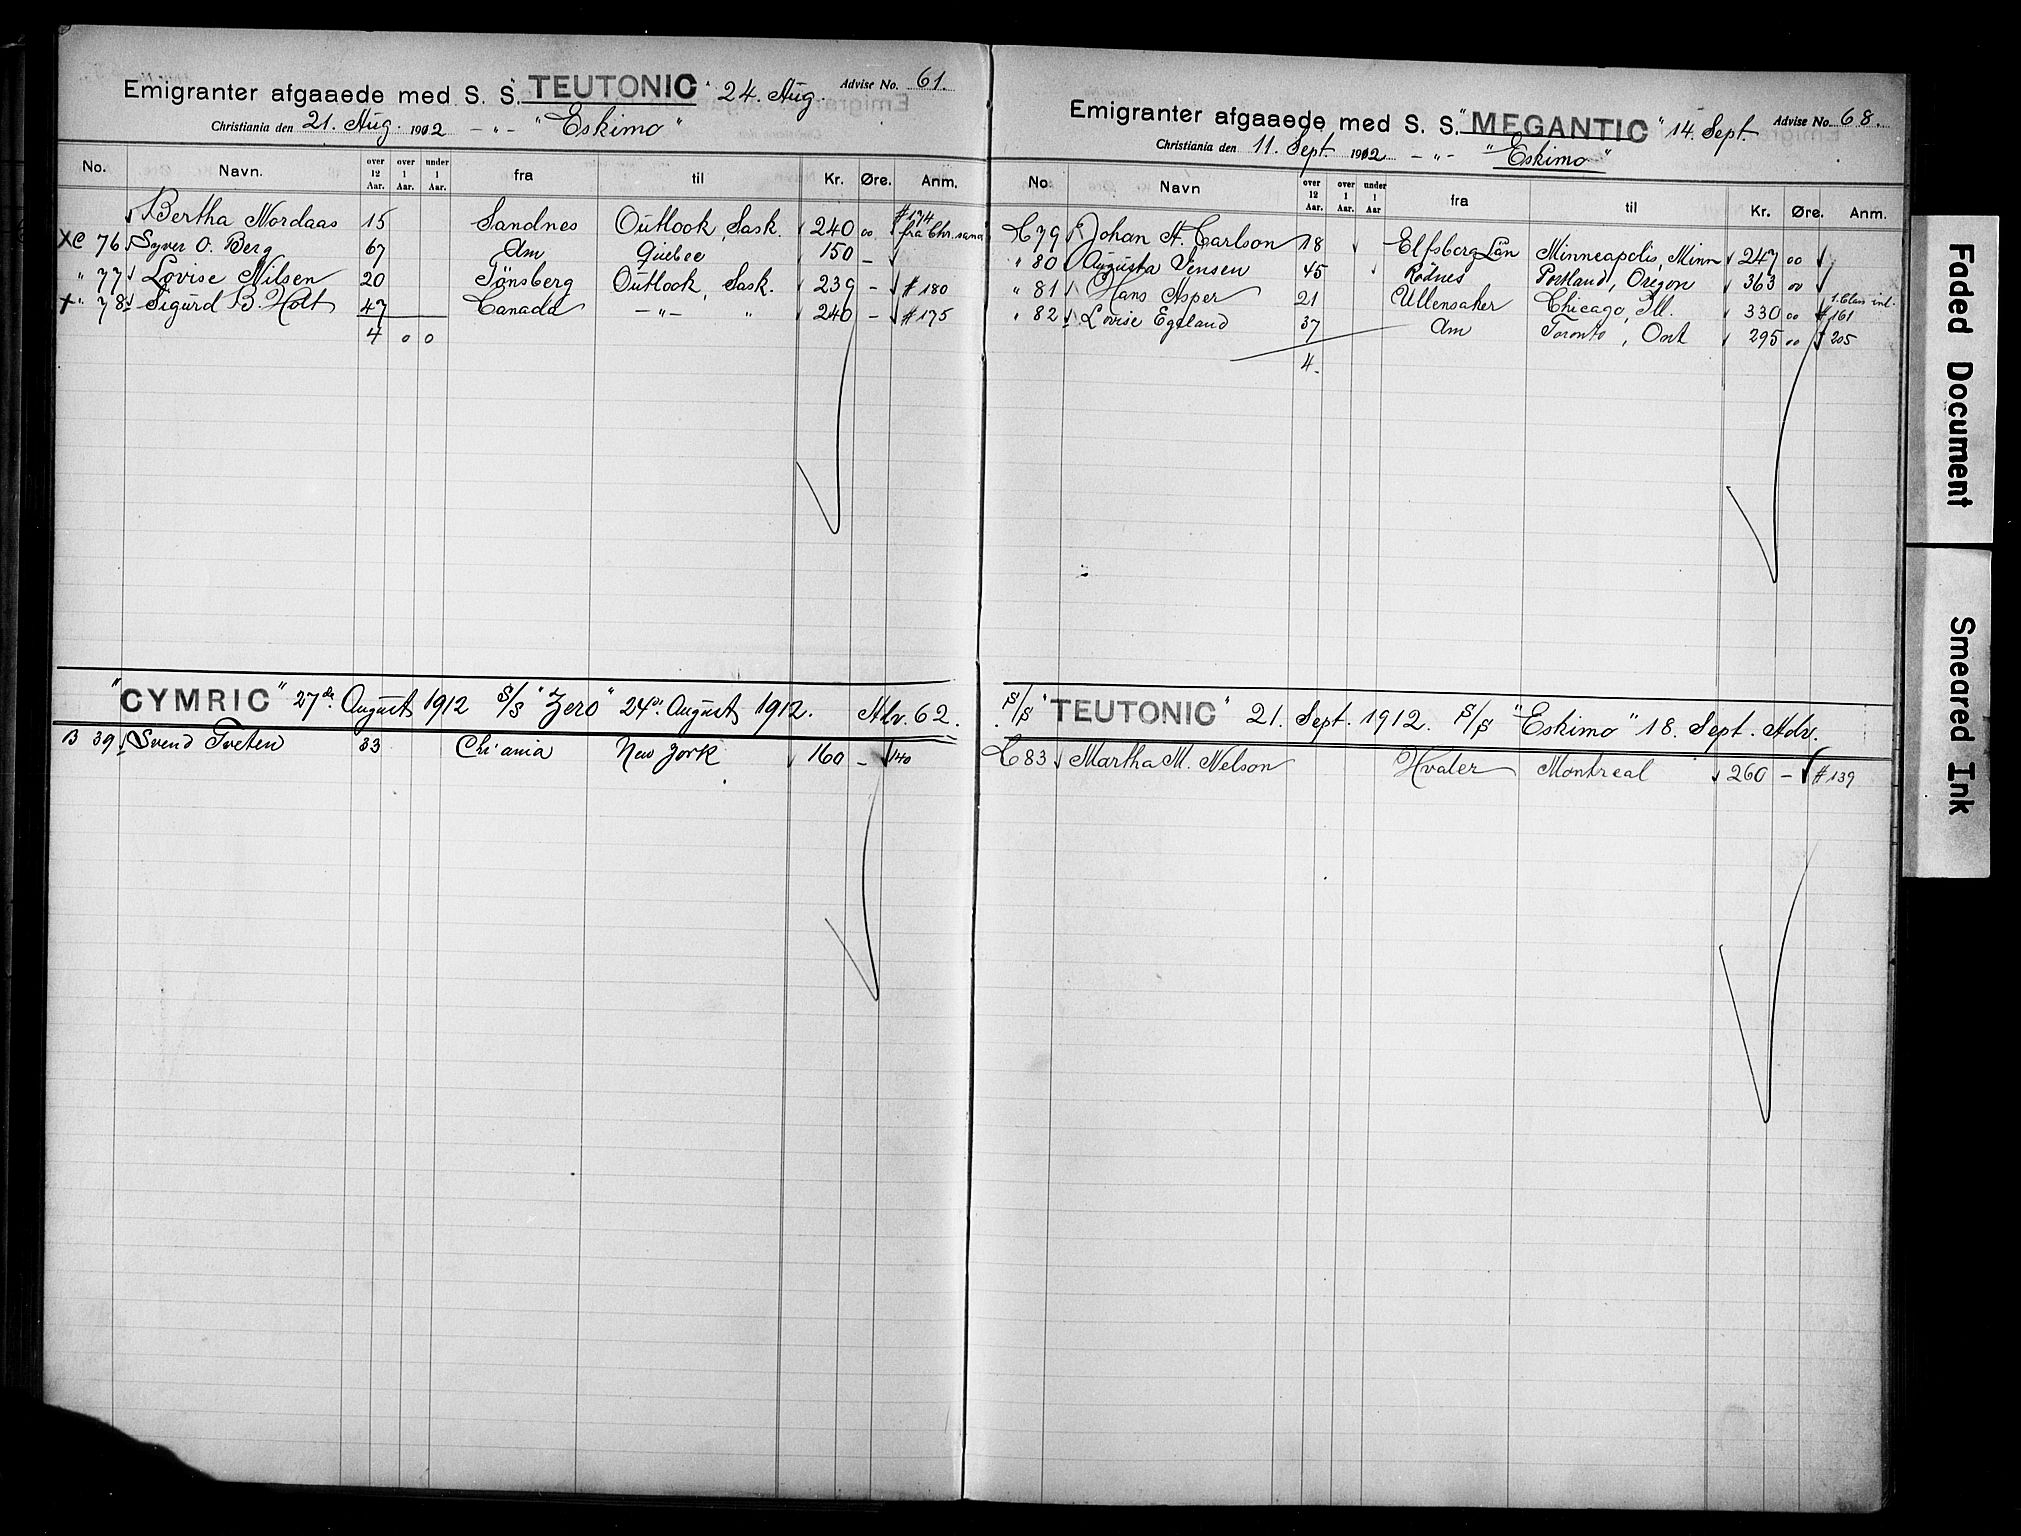 Emigranter afgaaede med S. S. "TEUTONIC" 24. Aug. Advise No. 61.
Christiania den 21. Aug. 1912 -"- "Eskimo"
No. Navn. over 12 Aar. over 1 Aar. under 1 Aar. fra til Kr. Øre. Anm.
Bertha Nordaas 15 Sandnes Outlook, Sask. 240 00 #174 fra Chr.sand
XC 76 Syver O. Berg 67 Am Quebec 150 -
" 77 Lovise Nilsen 20 Tönsberg Outlook, Sask. 239 - # 180
+ " 78 Sigurd B. Holt 47 Canada -"- " 240 - # 175
4 0 0
"CYMRIC" 27de August 1912 S/S "Zero" 24de August 1912. Adv. 62.
B 39 Svend Tveten 33 Chr'ania New York 160 - 140
Emigranter afgaaede med S. S. "MEGANTIC" 14. Sept. Advise No. 68.
Christiania den 11. Sept. 1912 -"- "Eskimo"
No. Navn over 12 Aar. over 1 Aar. under 1 Aar fra til Kr. Øre. Anm.
C 79 Johan A. Carlson 18 Elfsborg Län Minneapolis, Minn 247 00
" 80 Augusta Jensen 45 Rödnes Portland, Oregon 363 00
" 81 Hans Asper 21 Ullensaker Chicago, Ill. 330 00 1. Class inl. # 161
" 82 Lovise Egeland 37 Am Toronto, Ont 295 00 # 205
4.
S/S "TEUTONIC" 21. Sept. 1912. S/S "Eskimo" 18. Sept. Adv.
C 83 Martha M. Nelson Hvaler Montreal 260 - # 139
Faded Document
Smeared Ink